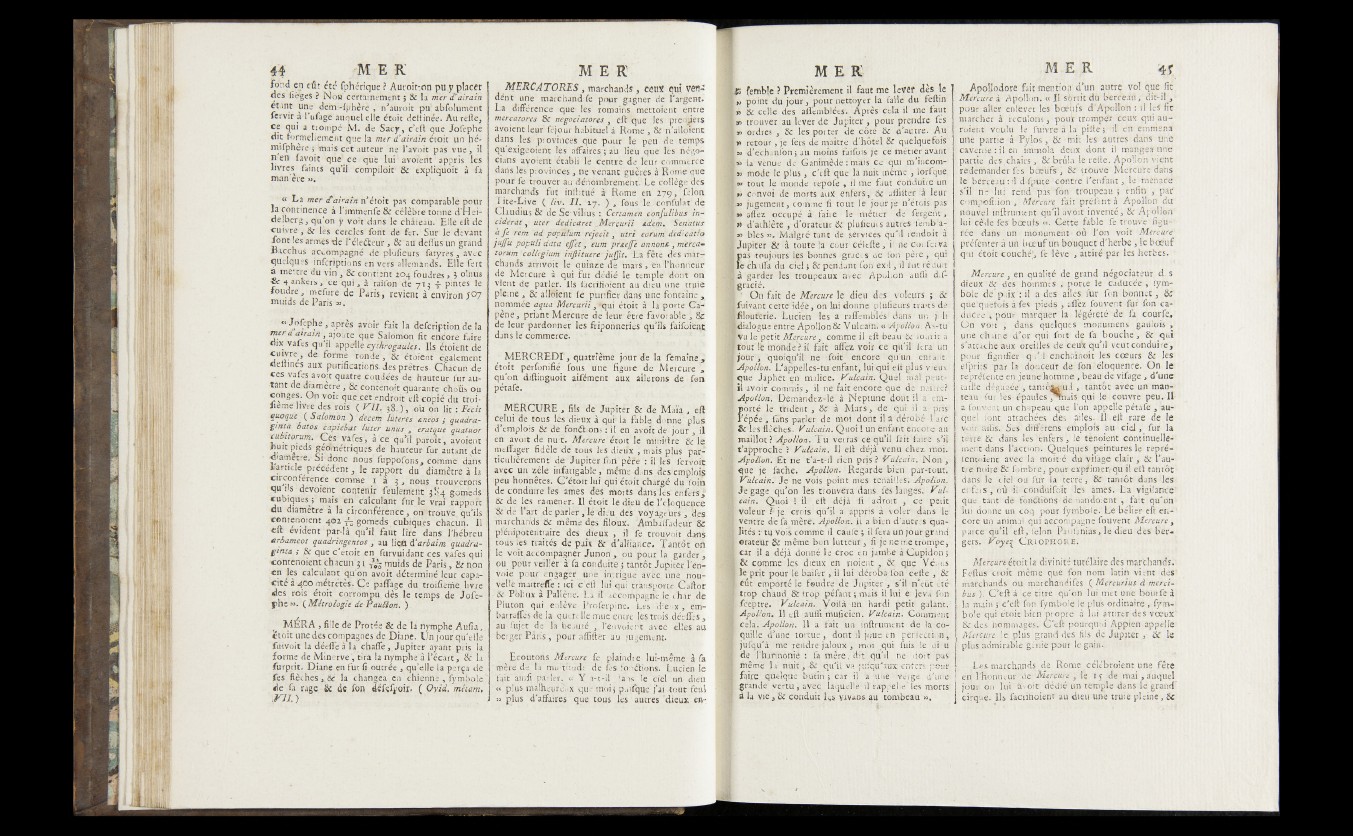 44 M E R
fond en eût été sphérique ? Auroit-on pu y placer
des sièges ? Non certainement ; & la mer d'airain
étant une demi-sphère , n'auroit pu absolument
servir à l'usage auquel elle étoit destinée. Au reste,
ce qui a trompé M. de Sacy, c'est que Josephe
dit formellement que la mer d'airain étoit un hé-
misphère ; mais cet auteur ne l'avoit pas vue, il
n'en savoit que ce que lui avoient appris les
livres saints qu'il compiloit & expliquoit à sa
manière ».
« La mer d'airain n'étoit pas comparable pour
la continence à l'immense & célèbre tonne d'Hei-
delberg, qu'on y voit dans le château. Elle est de
cuivre , & les cercles sont de fer. Sur le devant
sont les armes de l'électeur , & au dessus un grand
Bacchus accompagné de plusieurs satyres , avec
quelques inscriptions en vers allemands. Elle sert
à mettre du vin , & contient 204 foudres , 3 ohms
& 4 ankers , ce qui , à raison de 713 pintes le
foudre , mesure de Paris, revient à environ 507
muids de Paris ».
« Josephe , après avoir fait la description de la
mer d'airain , ajoute que Salomon fit encore faire
dix vases qu'il appelle cythrogaules. Ils étoient de
cuivre, de forme ronde , & étoient également
destinés aux purifications des prêtres Chacun de
ces vases avoit quatre coudées de hauteur sur au-
tant de diamètre , & contenoit quarante choüs ou
conges. On voit que cet endroit est copié du troi-
sième livre des rois ( VII. 38. ) , où on lit : Fecit
quoque ( Salomon ) decem luteres eneos ; quadra-
ginta batos capiebat luter unus , eratque quatuor
cubitorum. Ces vases , à ce qu'il paroît, avoient
huit pieds géométriques de hauteur sur autant de
diamètre. Si donc nous supposons, comme dans
l'article précédent , le rapport du diamètre à la
circonférence comme 1 à 3 , nous trouverons
qu'ils devoient contenir seulement 384 gomeds
cubiques ; mais en calculant sur le vrai rapport
du diamètre à la circonférence , on trouve qu'ils
contenoient 402 gomeds cubiques chacun. Il
est évident par-là qu'il faut lire dans l'hébreu
arbameot quadringentos , au lieu d'arbaim quadra-
ginta ; & que c'étoit en survuidant ces vases qui
contenoient chacun 31 muids de Paris , & non
en les calculant qu'on avoit déterminé leur capa-
cité à 400 métrètes. Ce passage du troisième livre
des rois étoit corrompu dès le temps de Jose-
phe ». ( Métrologie de Paucton. )
MÉRA , fille de Protée & de la nymphe Ausia,
étoit une des compagnes de Diane. Un jour qu'elle
suivoit la déesse à la chasse, Jupiter ayant pris la
forme de Minerve, tira la nymphe à l'écart, & la
surprit. Diane en fut si outrée , qu'elle la perça de
ses flèches, & la changea en chienne , symbole
de sa rage & de son désespoir. ( Ovid. métam.
VII. )
M E R
MERCATORES , marchands , ceux qui ven-
dent une marchandise pour gagner de l'argent.
La différence que les romains mettoient entre
mercatores & negociatores , est que les premiers
avoient leur séjour habituel à Rome , & n'alloient
dans les provinces que pour le peu de temps
qu'exigeoient les affaires ; au lieu que les négo-
cians avoient établi le centre de leur commerce
dans les provinces , ne venant guères à Rome que
pour se trouver au dénombrement. Le collège des
marchands fut institué à Rome en 279 , selon
Tite-Live ( liv. II. 27. ) , sous le consulat de
Claudius & de Servilius : Certamen consulibus in-
ciderat , uter dedicaret Mercurii ædem. Senatus
à se rem ad populum rejecit , utri eorum dedicatio
jussu populi data esset , eum præesse annonæ , merca-
torum collegium instituere jussit. La fête des mar-
chands arrivoit le quinze de mars , en l'honneur
de Mercure à qui fut dédié le temple dont on
vient de parler. Ils sacrifioient au dieu une truie
pleine , & alloient se purifier dans une fontaine ,
nommée aqua Mercurii , qui étoit à la porte Ca-
pène , priant Mercure de leur être favorable , &
de leur pardonner les friponneries qu'ils faisoient
dans le commerce.
MERCREDI , quatrième jour de la semaine ,
étoit personifié sous une figure de Mercure ,
qu'on distinguoit aisément aux ailerons de son
pétase.
MERCURE , fils de Jupiter & de Maïa , est
celui de tous les dieux à qui la fable donne plus
d'emplois & de fonctions : il en avoit de jour , il
en avoit de nuit. Mercure étoit le ministre & le
messager fidèle de tous les dieux , mais plus par-
ticulièrement de Jupiter son père : il les servoit
avec un zèle infatigable , même dans des emplois
peu honnêtes. C'étoit lui qui étoit chargé du soin
de conduire les ames des morts dans les enfers,
& de les ramener. Il étoit le dieu de l'éloquence
& de l'art de parler , le dieu des voyageurs , des
marchands & même des filoux. Ambassadeur &
plénipotentiaire des dieux , il se trouvoit dans
tous les traités de paix & d'alliance. Tantôt on
le voit accompagner Junon , ou pour la garder ,
ou pour veiller à sa conduite ; tantôt Jupiter l'en-
voie pour engager une intrigue avec une nou-
velle maîtresse : ici c'est lui qui transporte Castor
& Pollux à Pallène. Là il accompagne le char de
Pluton qui enlève Proserpine. Les dieux , em-
barrassés de la querelle mue entre les trois déesses ,
au sujet de la beauté , l'envoient avec elles au
berger Pâris , pour assister au jugement.
Ecoutons Mercure se plaindre lui-même à sa
mère de la multitude de ses fonctions. Lucien le
fait ainsi parler. « Y a-t-il dans le ciel un dieu
» plus malheureux que moi, puisque j'ai tout seul
» plus d'affaires que tous les autres dieux en-
M E R
» semble ? Premièrement il faut me lever dès le
» point du jour , pour nettoyer la salle du festin
» & celle des assemblées. Après cela il me faut
» trouver au lever de Jupiter , pour prendre ses
» ordres , & les porter de côté & d'autre. Au
» retour , je sers de maître d'hôtel & quelquefois
» d'échanson ; au moins faisois je ce métier avant
» la venue de Ganimède : mais ce qui m'incom-
» mode le plus , c'est que la nuit même , lorsque
» tout le monde repose , il me faut conduire un
» convoi de morts aux enfers, & assister à leur
» jugement , comme si tout le jour je n'étois pas
» assez occupé à faire le métier de sergent ,
» d'athlète , d'orateur & plusieurs autres sembla-
» bles ». Malgré tant de services qu'il rendoit à
Jupiter & à toute la cour céleste , il ne conserva
pas toujours les bonnes graces de son père , qui
le chassa du ciel ; & pendant son exil , il fut réduit
à garder les troupeaux avec Apollon aussi dis-
gracié.
On fait de Mercure le dieu des voleurs ; &
suivant cette idée , on lui donne plusieurs traits de
filouterie. Lucien les a rassemblés dans un joli
dialogue entre Apollon & Vulcain. « Apollon As-tu
vu le petit Mercure , comme il est beau & sourit à
tout le monde ? il fait assez voir ce qu'il sera un
jour , quoiqu'il ne soit encore qu'un enfant.
Apollon. L'appelles-tu enfant, lui qui est plus vieux
que Japhet en malice. Vulcain. Quel mal peut-
il avoir commis , il ne fait encore que de naître ?
Apollon. Demandez-le à Neptune dont il a em-
porté le trident , & à Mars, de qui il a pris
l'épée , sans parler de moi dont il a dérobé l'arc
& les flèches. Vulcain. Quoi ! un enfant encore au
maillot ? Apollon. Tu verras ce qu'il sait faire s'il
t'approche ? Vulcain. Il est déjà venu chez moi.
Apollon. Et ne t'a-t-il rien pris ? Vulcain. Non ,
que je sache. Apollon. Regarde bien par-tout.
Vulcain. Je ne vois point mes tenailles. Apollon.
Je gage qu'on les trouvera dans ses langes. Vul-
cain. Quoi ! il est déjà si adroit , ce petit
voleur ? je crois qu'il a appris à voler dans le
ventre de sa mère. Apollon. Il a bien d'autres qua-
lités : tu vois comme il cause ; il sera un jour grand
orateur & même bon lutteur , si je ne me trompe ,
car il a déjà donné le croc en jambe à Cupidon ;
& comme les dieux en rioient , & que Vénus
le prit pour le baiser , il lui déroba son ceste , &
eût emporté le foudre de Jupiter , s'il n'eût été
trop chaud & trop pésant ; mais il lui enleva son
sceptre. Vulcain. Voilà un hardi petit galant.
Apollon. Il est aussi musicien. Vulcain. Comment
cela. Apollon. Il a fait un instrument de la co-
quille d'une tortue , dont il joue en perfection ,
jusqu'à me rendre jaloux , moi qui suis le dieu
de l'harmonie : sa mère, dit qu'il ne dort pas
même la nuit , & qu'il va jusqu'aux enfers pour
faire quelque butin ; car il a une verge d'une
grande vertu , avec laquelle il rappelle les morts
à la vie , & conduit les vivans au tombeau ».
M E R 45
Apollodore fait mention d'un autre vol que fit
Mercure à Apollon. « Il sortit du berceau , dit-il ,
pour aller enlever les bœufs d'Apollon : il les fit
marcher à reculons , pour tromper ceux qui au-
roient voulu le suivre à la piste ; il en emmena
une partie à Pylos , & mit les autres dans une
caverne : il en immola deux dont il mangea une
partie des chairs , & brûla le reste. Apollon vient
redemander ses bœufs , & trouve Mercure dans
le berceau : il dispute contre l'enfant , le menace
s'il ne lui rend pas son troupeau ; enfin , par
composition , Mercure fait présent à Apollon du
nouvel instrument qu'il avoit inventé, & Apollon
lui cède ses bœufs ». Cette fable se trouve figu-
rée dans un monument où l'on voit Mercure
présenter à un bœuf un bouquet d'herbe , le bœuf
qui étoit couché, se lève , attiré par les herbes.
Mercure , en qualité de grand négociateur des
dieux & des hommes , porte le caducée , sym-
bole de paix : il a des aîles sur son bonnet , &
quelquefois à ses pieds , assez souvent sur son ca-
ducée , pour marquer la légéreté de sa course.
On voit , dans quelques monumens gaulois ,
une chaîne d'or qui sort de sa bouche , & qui
s'attache aux oreilles de ceux qu'il veut conduire ,
pour signifier qu'il enchaînoit les cœurs & les
esprits par la douceur de son éloquence. On le
représente en jeune homme , beau de visage , d'une
taille dégagée , tantôt nud , tantôt avec un man-
teau sur les épaules , mais qui le couvre peu. Il
a souvent un chapeau que l'on appelle pétase , au-
quel sont attachées des ailes. Il est rare de le
voir assis. Ses différens emplois au ciel , sur la
terre & dans les enfers , le tenoient continuelle-
ment dans l'action. Quelques peintures le repré-
sentoient avec la moitié du visage clair , & l'au-
tre noire & sombre, pour exprimer qu'il est tantôt
dans le ciel ou sur la terre , & tantôt dans les
enfers , où il conduisoit les ames. La vigilance
que tant de fonctions demandoient , fait qu'on
lui donne un coq pour symbole. Le bélier est en-
core un animal qui accompagne souvent Mercure ,
parce qu'il est, selon Pausanias, le dieu des ber-
gers. Voyez CRIOPHORE.
Mercure étoit la divinité tutélaire des marchands.
Festus croit même que son nom latin vient des
marchands ou marchandises ( Mercurius à merci-
bus ). C'est à ce titre qu'on lui met une bourse à
la main ; c'est son symbole le plus ordinaire , sym-
bole qui étoit bien propre à lui attirer des vœux
& des hommages. C'est pourquoi Appien appelle
Mercure le plus grand des fils de Jupiter , & le
plus admirable génie pour le gain.
Les marchands de Rome célébroient une fête
en l'honneur de Mercure , le 15 de mai , auquel
jour on lui avoit dédié un temple dans le grand
cirque. Ils sacrifioient au dieu une truie pleine , &